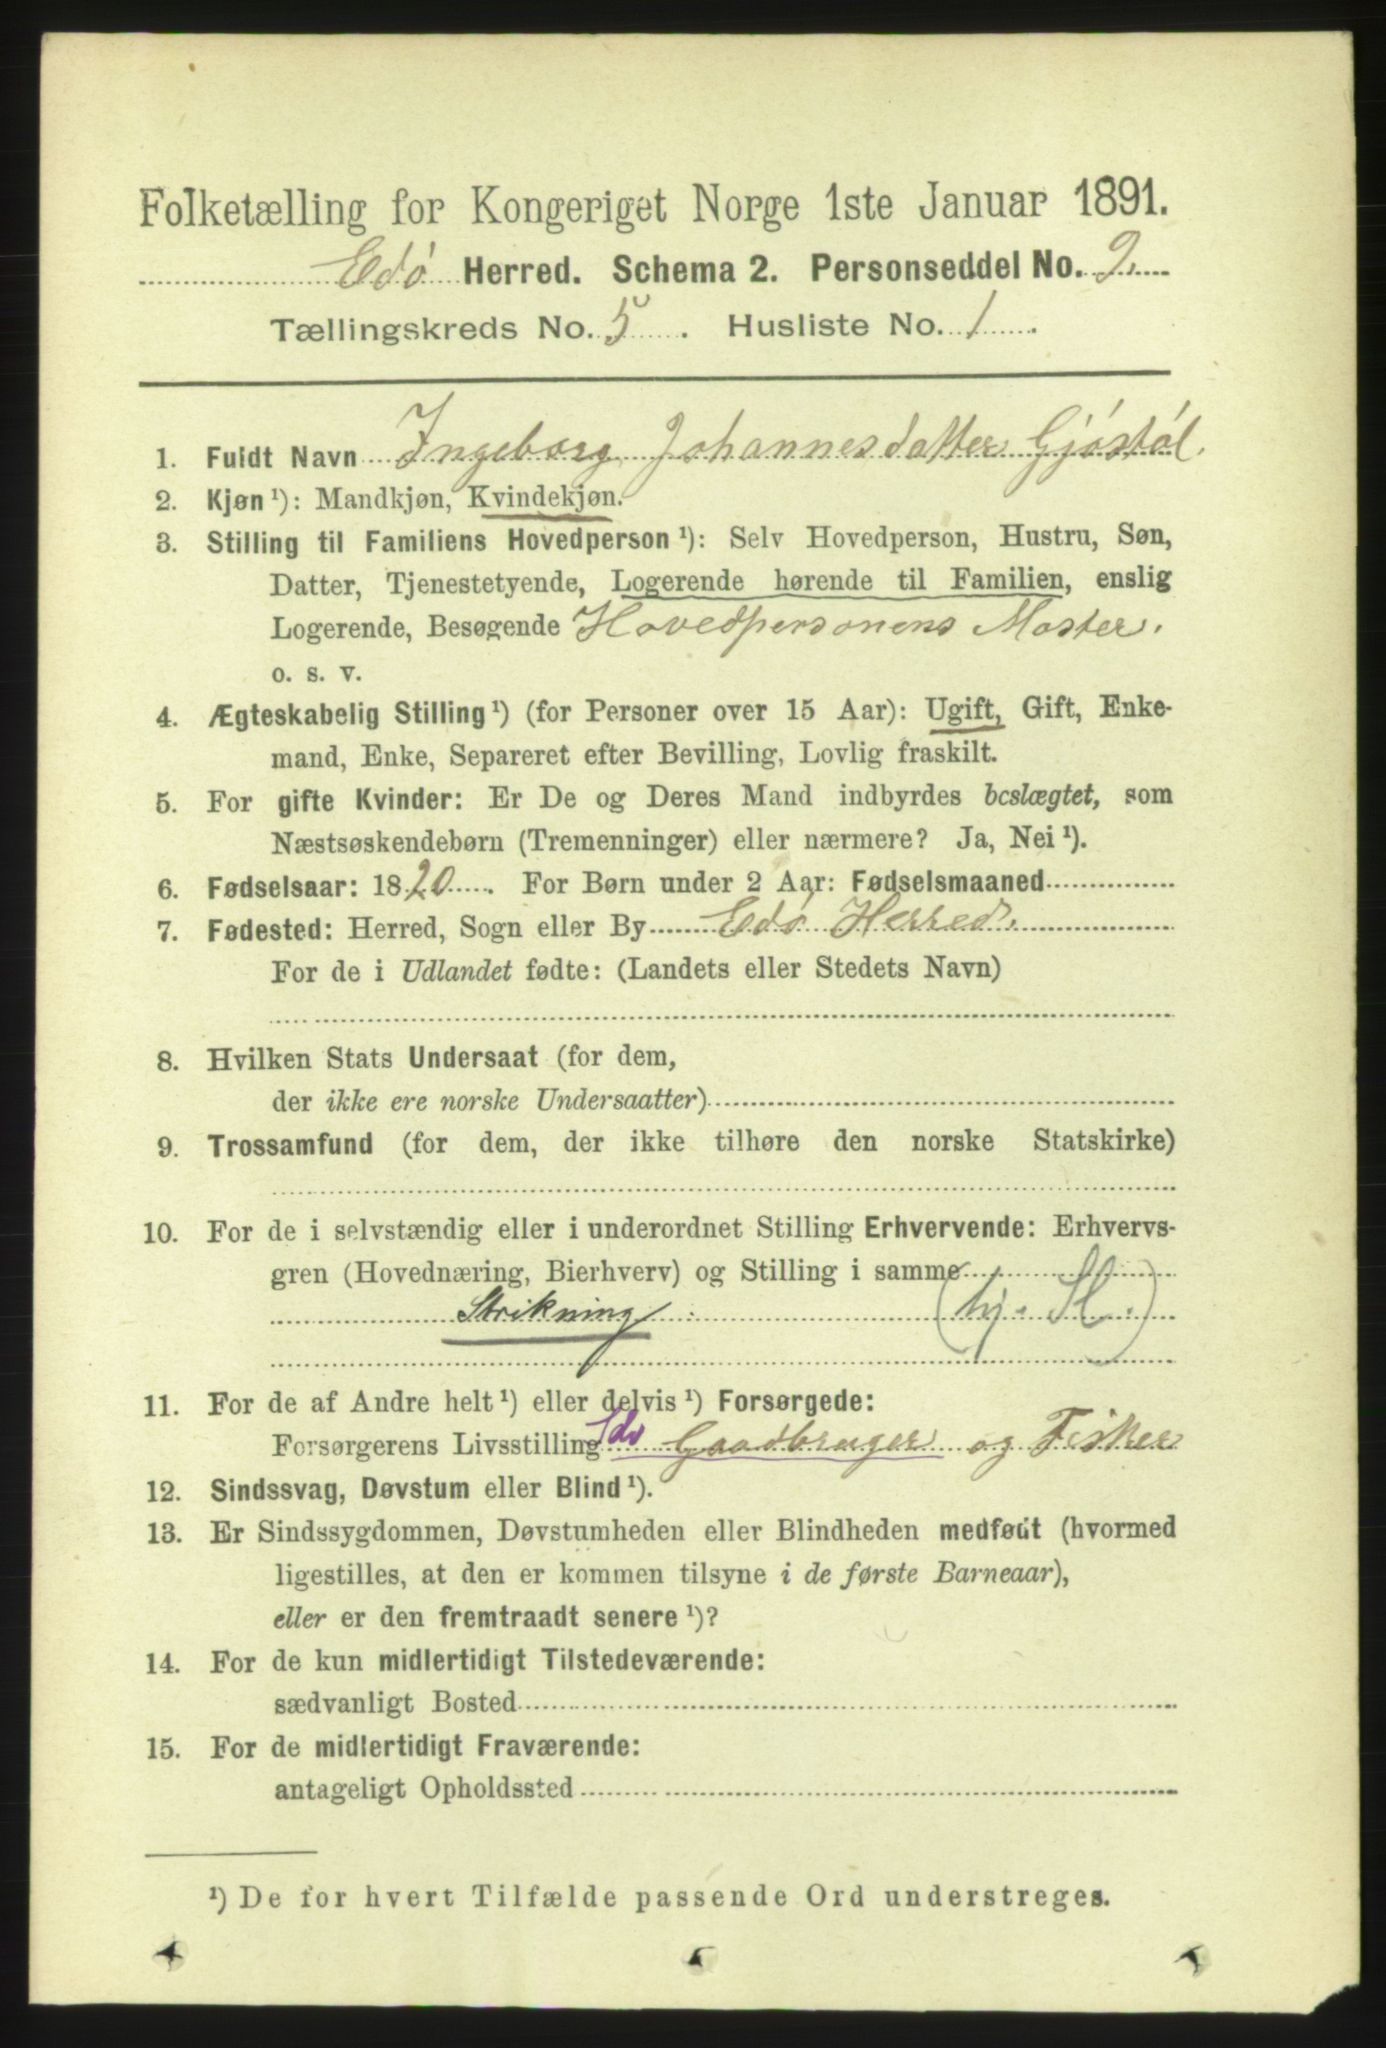 Folketælling for Kongeriget Norge 1ste Januar 1891.
Edø Herred. Schema 2. Personseddel No. 2.
Tællingskreds No. 5. Husliste No. 1.
1. Fuldt Navn Ingeborg Johannesdatter Gjøstøl.
2. Kjøn ¹): Mandkjøn, Kvindekjøn.
3. Stilling til Familiens Hovedperson ¹): Selv Hovedperson, Hustru, Søn,
Datter, Tjenestetyende, Logerende hørende til Familien, enslig
Logerende, Besøgende Hovedpersonens Moster.
o. s. v.
4. Ægteskabelig Stilling ¹) (for Personer over 15 Aar): Ugift, Gift, Enke-
mand, Enke, Separeret efter Bevilling, Lovlig fraskilt.
5. For gifte Kvinder: Er De og Deres Mand indbyrdes beslægtet, som
Næstsøskendebørn (Tremenninger) eller nærmere? Ja, Nei ¹).
6. Fødselsaar: 1820. For Børn under 2 Aar: Fødselsmaaned
7. Fødested: Herred, Sogn eller By Edø Herred.
For de i Udlandet fødte: (Landets eller Stedets Navn)
8. Hvilken Stats Undersaat (for dem,
der ikke ere norske Undersaatter)
9. Trossamfund (for dem, der ikke tilhøre den norske Statskirke)
10. For de i selvstændig eller i underordnet Stilling Erhvervende: Erhvervs-
gren (Hovednæring, Bierhverv) og Stilling i samme
Strikning (hj. Sl.)
11. For de af Andre helt ¹) eller delvis ¹) Forsørgede:
Forsørgerens Livsstilling Gaadbruger og Fisker
12. Sindssvag, Døvstum eller Blind ¹).
13. Er Sindssygdommen, Døvstumheden eller Blindheden medfødt (hvormed
ligestilles, at den er kommen tilsyne i de første Barneaar),
eller er den fremtraadt senere ¹)?
14. For de kun midlertidigt Tilstedeværende:
sædvanligt Bosted
15. For de midlertidigt Fraværende:
antageligt Opholdssted
¹) De for hvert Tilfælde passende Ord understreges.